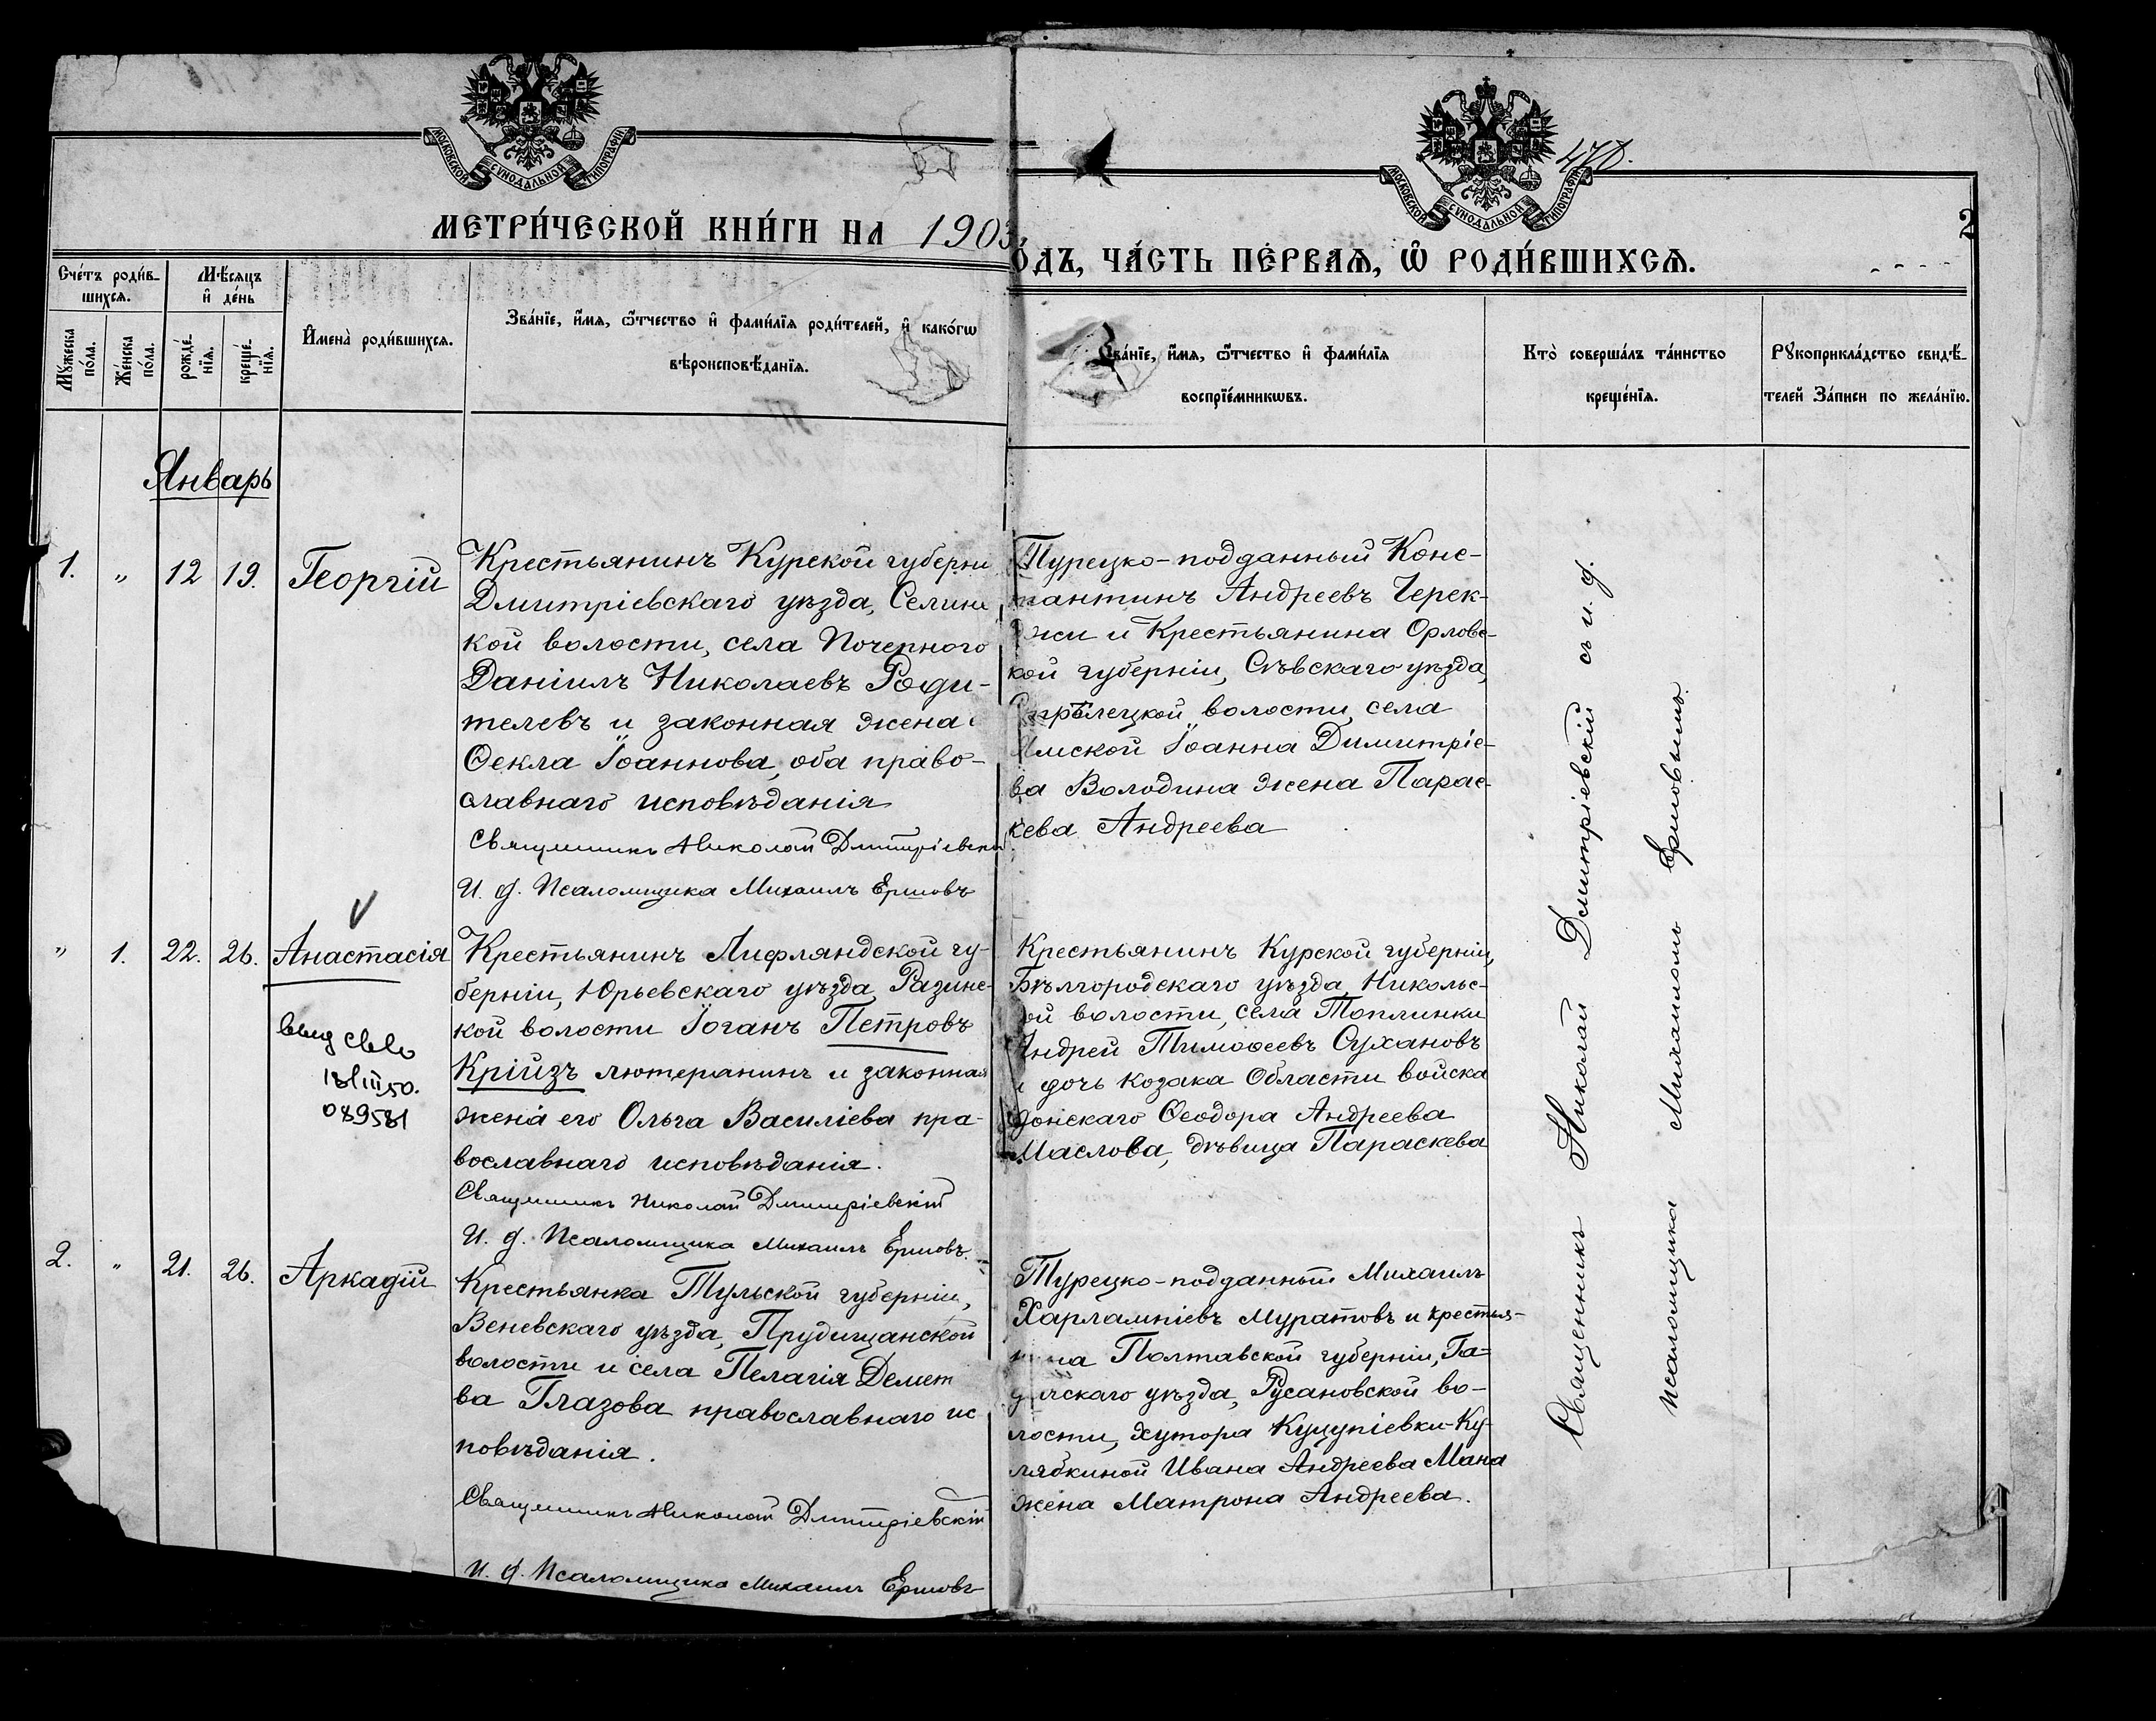 МОСКОВСКОЙ СѴНОДАЛЬНОЙ ТИПОГРАФІИ
МОСКОВСКОЙ СѴНОДАЛЬНОЙ ТИПОГРАФІИ
МЕТРИ́ЧЕСКОЙ КНИ́ГИ НА 1903
2
ОДЪ, ЧА́СТЬ ПЕ́РВАѦ, Ѡ РОДИ́ВШИХСѦ.
Сче́тъ роди́в-
шихся.
Мѣ́сяцъ
и де́нь
Мꙋ́жеска по́ла.
Же́нска по́ла.
рожде́-
нїя.
креще́-
нїя.
Имена̀ роди́вшихся.
Зва́нїе, и́мя, ѻ́тчество и фами́лїя роди́телей, и како́гѡ
вѣроисповѣ́данїя.
Зва́нїе, и́мя, ѻ́тчество и фами́лїя
воспрїе́мникѡвъ.
Кто̀ соверша́лъ та́инство
креще́нїя.
Рꙋкоприкла́дство свидѣ́-
телей За́писи по жела́нїю.
Январь
1. „ 12 19. Георгій
Крестьянинъ Курской губерни
Дмитріевскаго уѣзда, Селин
кой волости, села Почепного
Даніилъ Николаевъ Роди-
телевъ и законная жена
Ѳекла Іоаннова, оба право-
славнаго исповѣданія
Священникъ Николай Дмитріевскій
И. д. Псаломщика Михаилъ Ершовъ
Турецко-подданный Конс-
тантинъ Андреевъ Черек-
джи и Крестьянина Орловс-
кой губерніи, Сѣвскаго уѣзда,
волости, села
Ямской Іоанна Димитріе-
ва Володина жена Парас-
кева Андреева
„ 1. 22. 26. Анастасія
Крестьянинъ Лифляндской гу-
берніи, Юрьевскаго уѣзда, Разинс-
кой волости Іоганъ Петровъ
Крійзъ лютеранинъ и законная
жена его Ольга Василіева пра-
вославнаго исповѣданія.
Священникъ Николай Дмитріевскій
И. д. Псаломщика Михаилъ Ершовъ.
18/III 50.
089581
Крестьянинъ Курской губерніи,
Бѣлгородскаго уѣзда, Никольс-
кой волости, села Топлинки
Андрей Тимоѳеевъ Сухановъ
и дочь козака Области войска
Донскаго Ѳеодора Андреева
Маслова, дѣвица Параскева
2. „ 21. 26. Аркадій
Крестьянка Тульской губерніи,
Веневскаго уѣзда, Прудищанской
волости и села Пелагія Демет
ва Глазова православнаго ис
повѣданія.
Священникъ Николай Дмитріевскій
И. д. Псаломщика Михаилъ Ершовъ
Турецко-подданный Михаилъ
Харлампіевъ Муратовъ и крестья-
нина Полтавской губерніи, Га-
дячскаго уѣзда, Русановской во-
лости, хутора Куцупіевки-Ку-
лябкиной Ивана Андреева Мана
жена Матрона Андреева.
Священникъ Николай Дмитріевскій съ и. д.
псаломщика Михаиломъ Ершовымъ.